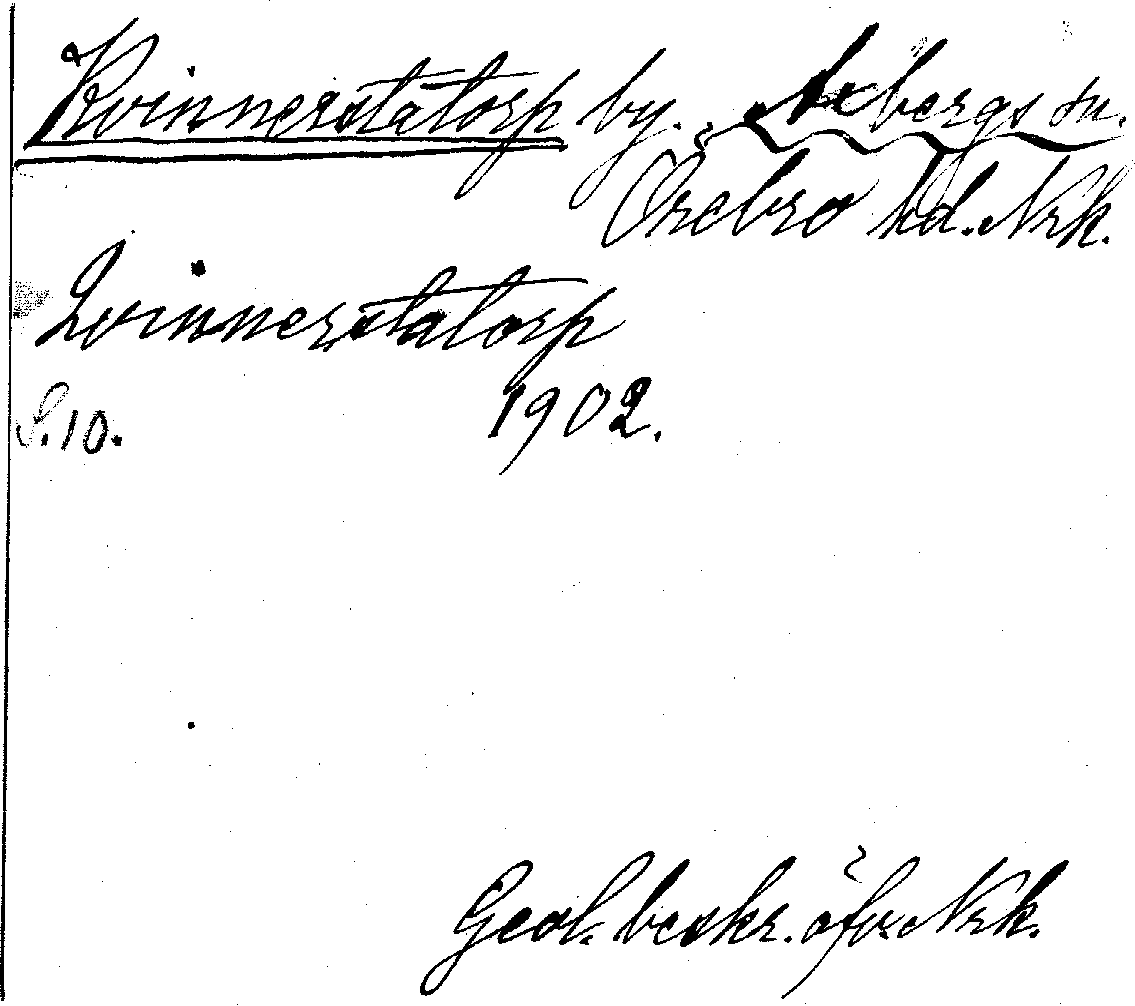 Kvinnerstatorp by. Axbergs sn.
Örebro hd. Nrk.
Qvinnerstatorp
S. 10. 1902.
Geol. beskr. öfver Nrk.